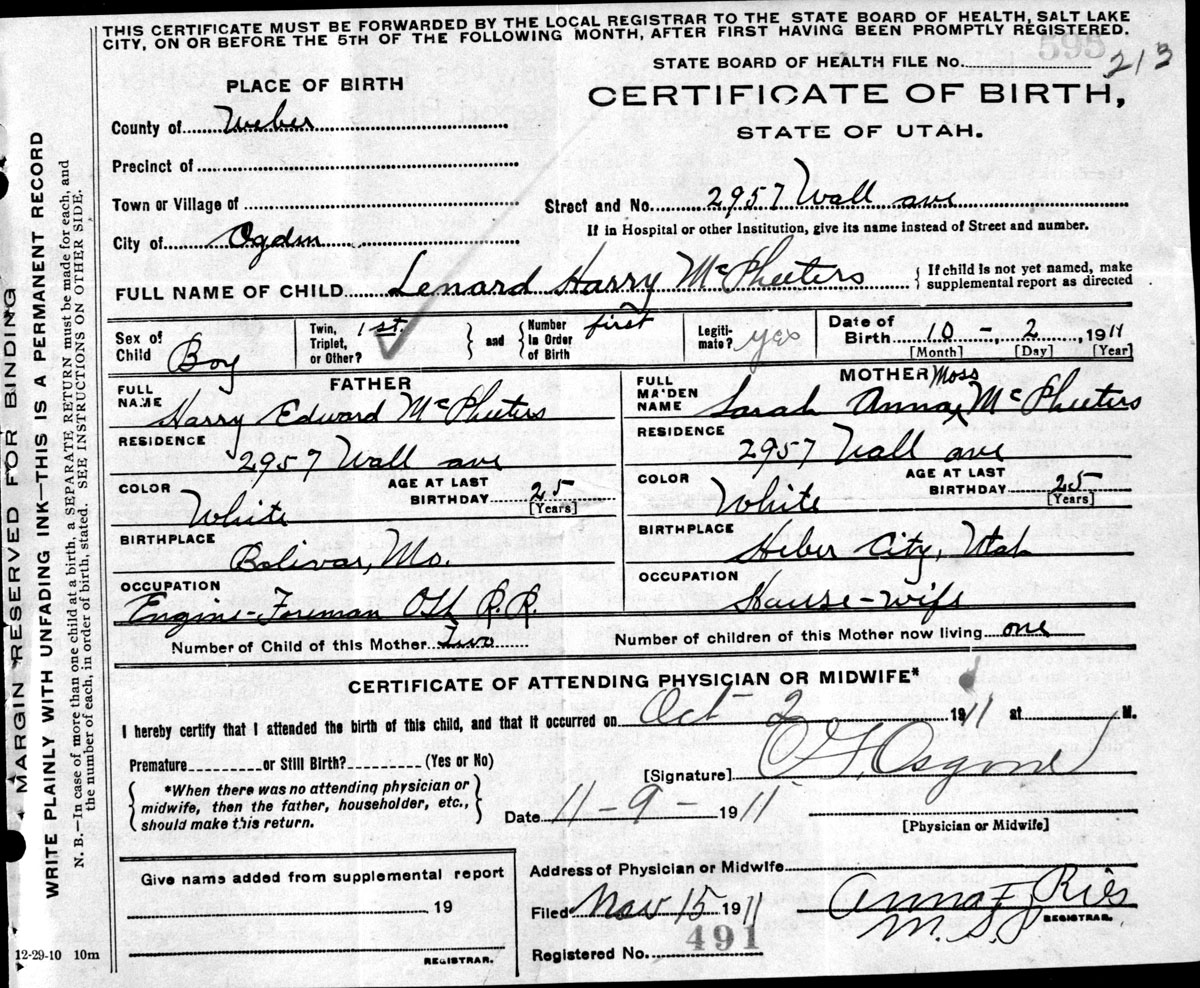 THIS CERTIFICATE MUST BE FORWARDED BY THE LOCAL REGISTRAR TO THE STATE BOARD OF HEALTH, SALT LAKE
CITY, ON OR BEFORE THE 5TH OF THE FOLLOWING MONTH, AFTER FIRST HAVING BEEN PROMPTLY REGISTERED.
595
STATE BOARD OF HEALTH FILE No. 213
PLACE OF BIRTH
CERTIFICATE OF BIRTH,
STATE OF UTAH.
County of Weber
Precinct of
Town or Village of
Street and No. 2957 Wall ave
City of Ogden
If in Hospital or other Institution, give its name instead of Street and number.
FULL NAME OF CHILD Lenard Harry McPheeters { If child is not yet named, make
supplemental report as directed
Sex of Child Boy
Twin, Triplet, or Other? 1st.
and
Number in Order of Birth first
Legiti-mate? yes
Date of Birth 10 - 2, 1911
[Month] [Day] [Year]
FATHER
FULL NAME Harry Edward McPheeters
RESIDENCE
2957 Wall ave
COLOR White
AGE AT LAST BIRTHDAY 25
[Years]
BIRTHPLACE
Bolivar, Mo.
OCCUPATION
Engine-Foreman R.R.
MOTHER
FULL MAIDEN NAME Sarah Anna Moss McPheeters
RESIDENCE
2957 Wall ave
COLOR White
AGE AT LAST BIRTHDAY 25
[Years]
BIRTHPLACE
Heber City, Utah
OCCUPATION
House-wife
Number of Child of this Mother Two Number of children of this Mother now living one
CERTIFICATE OF ATTENDING PHYSICIAN OR MIDWIFE*
I hereby certify that I attended the birth of this child, and that it occurred on Oct 2 1911 at M.
Premature or Still Birth? (Yes or No)
[Signature] Osgood
*When there was no attending physician or
midwife, then the father, householder, etc.,
should make this return.
Date 11-9-1911
[Physician or Midwife]
Give name added from supplemental report
19
REGISTRAR.
Address of Physician or Midwife
Filed Nov 15 1911 Anna F Ries
REGISTRAR.
Registered No. 491
12-29-10 10m
MARGIN RESERVED FOR BINDING
WRITE PLAINLY WITH UNFADING INK—THIS IS A PERMANENT RECORD
N. B.—In case of more than one child at birth, a SEPARATE RETURN must be made for each, and
the number of each, in order of birth, stated. SEE INSTRUCTIONS ON OTHER SIDE.